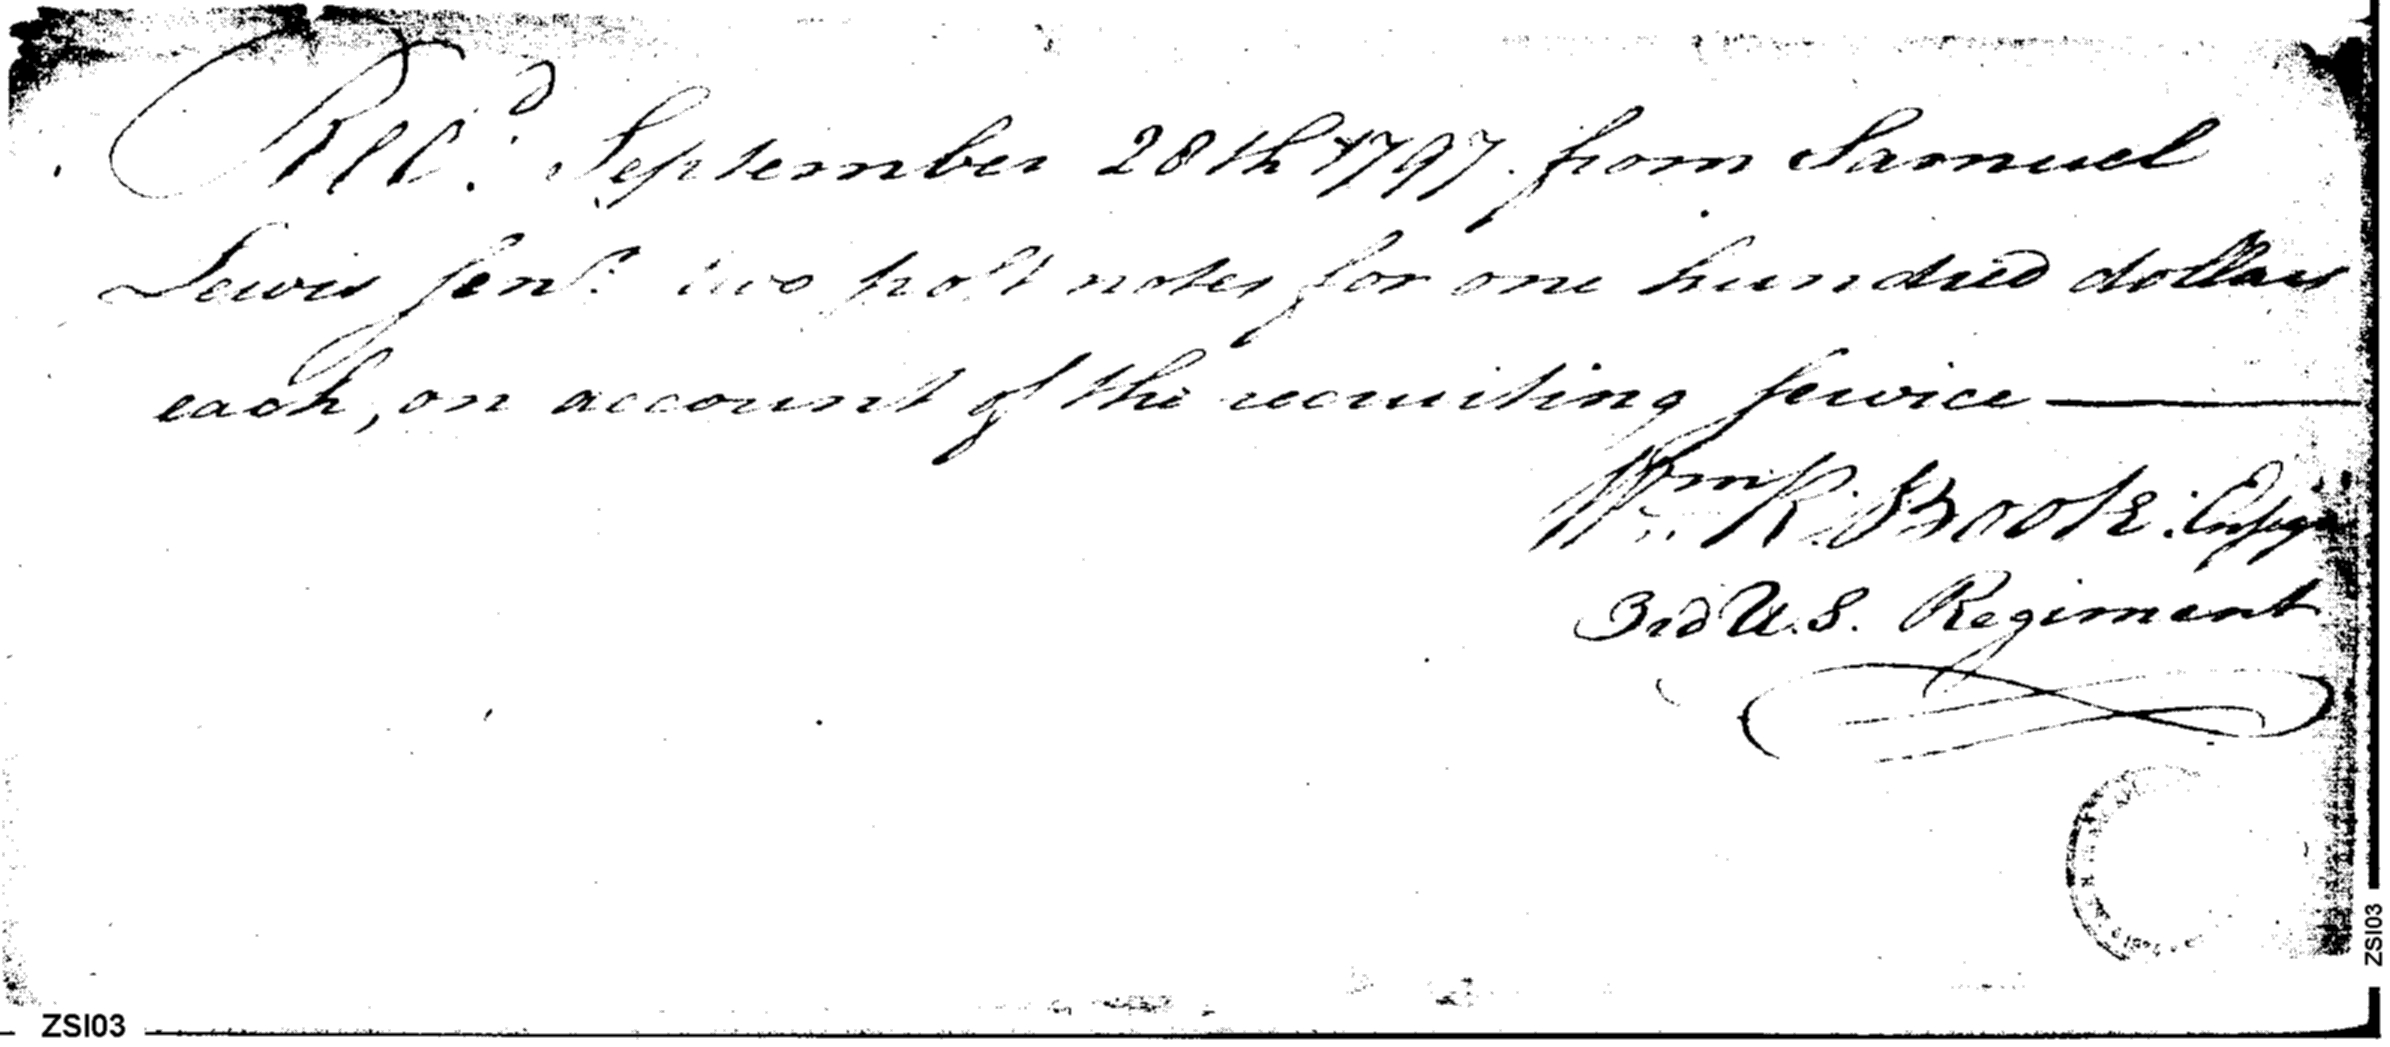 Recd. September 28th 1797. from Samuel
Lewis senr. two post notes for one hundred dollars
each, on account of the recruiting service
Wm. R. Boote. Ensign
3rd U.S. Regiment
ZSI03
ZSI03